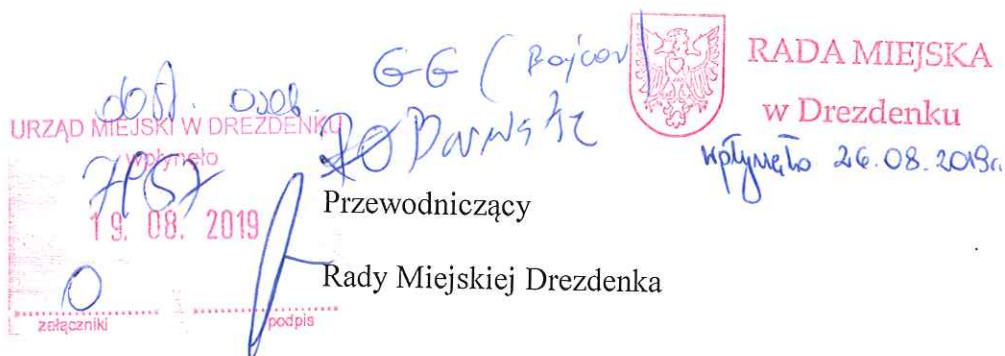 dost. osob.
GG (
URZĄD MIEJSKI W DREZDENKU
wpłynęło
19. 08. 2019
0
załączniki
podpis
RADA MIEJSKA
w Drezdenku
wpłynęło 26.08.2019r.
Przewodniczący
Rady Miejskiej Drezdenka